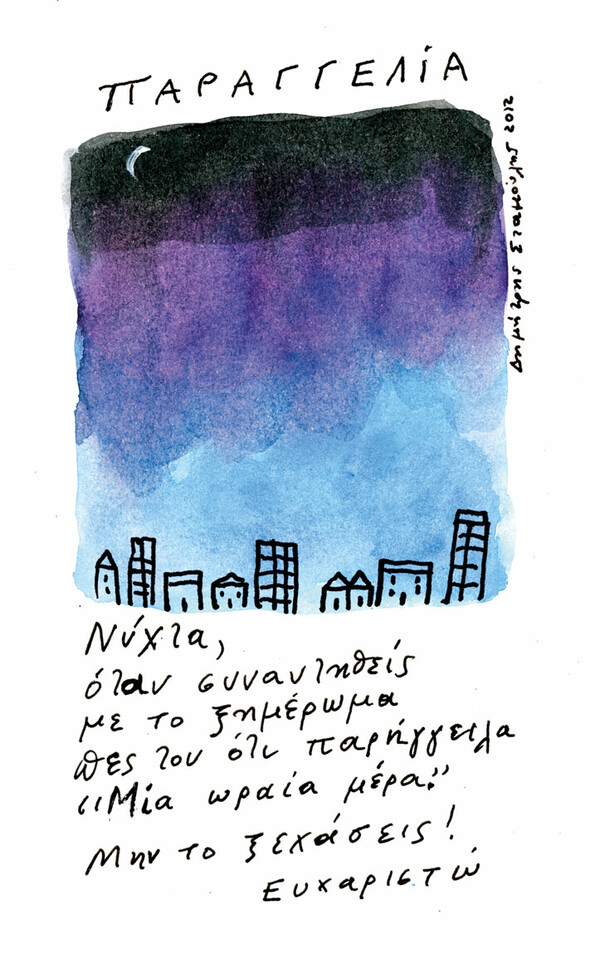 ΠΑΡΑΓΓΕΛΙΑ
Δημήτρης Σταμούλης 2012
Νύχτα,
όταν συναντηθείς
με το ξημέρωμα
πες του ότι παρήγγειλα
“Μία ωραία μέρα.”
Μην το ξεχάσεις!
Ευχαριστώ